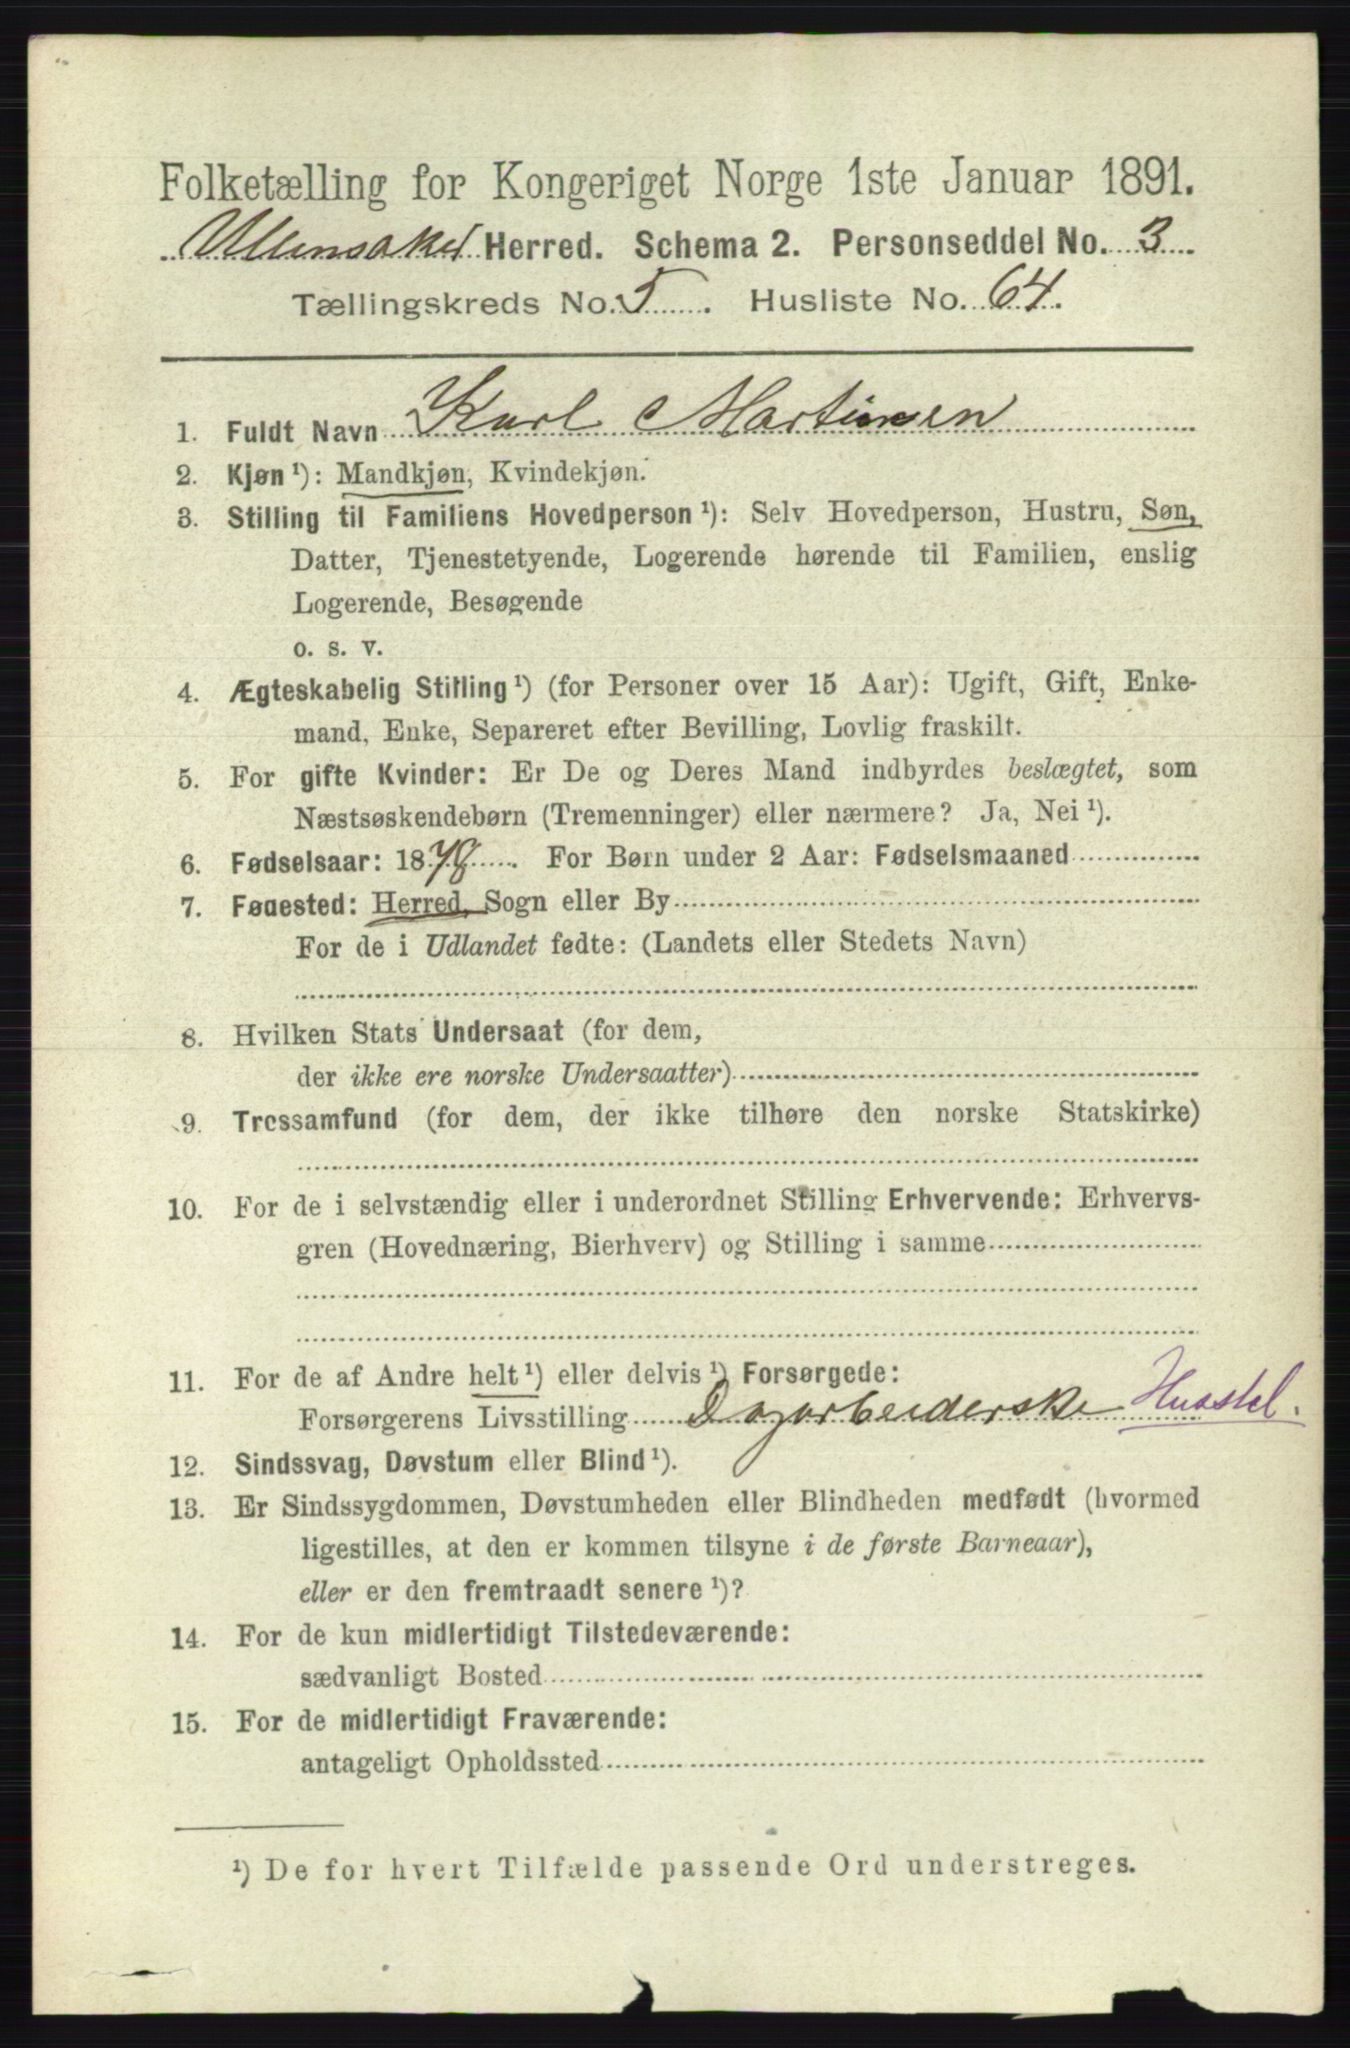 Folketælling for Kongeriget Norge 1ste Januar 1891.
Ullensaker Herred. Schema 2. Personseddel No. 3
Tællingskreds No. 5. Husliste No. 64.
1. Fuldt Navn Karl Martinsen
2. Kjøn ¹): Mandkjøn, Kvindekjøn.
3. Stilling til Familiens Hovedperson ¹): Selv Hovedperson, Hustru, Søn,
Datter, Tjenestetyende, Logerende hørende til Familien, enslig
Logerende, Besøgende
o. s. v.
4. Ægteskabelig Stilling ¹) (for Personer over 15 Aar): Ugift, Gift, Enke-
mand, Enke, Separeret efter Bevilling, Lovlig fraskilt.
5. For gifte Kvinder: Er De og Deres Mand indbyrdes beslægtet, som
Næstsøskendebørn (Tremenninger) eller nærmere? Ja, Nei ¹).
6. Fødselsaar: 1878. For Børn under 2 Aar: Fødselsmaaned
7. Fødested: Herred, Sogn eller By
For de i Udlandet fødte: (Landets eller Stedets Navn)
8. Hvilken Stats Undersaat (for dem,
der ikke ere norske Undersaatter)
9. Trossamfund (for dem, der ikke tilhøre den norske Statskirke)
10. For de i selvstændig eller i underordnet Stilling Erhvervende: Erhvervs-
gren (Hovednæring, Bierhverv) og Stilling i samme
11. For de af Andre helt ¹) eller delvis ¹) Forsørgede:
Forsørgerens Livsstilling Dagarbeiderske Husstel.
12. Sindssvag, Døvstum eller Blind ¹).
13. Er Sindssygdommen, Døvstumheden eller Blindheden medfødt (hvormed
ligestilles, at den er kommen tilsyne i de første Barneaar),
eller er den fremtraadt senere ¹)?
14. For de kun midlertidigt Tilstedeværende:
sædvanligt Bosted
15. For de midlertidigt Fraværende:
antageligt Opholdssted
¹) De for hvert Tilfælde passende Ord understreges.